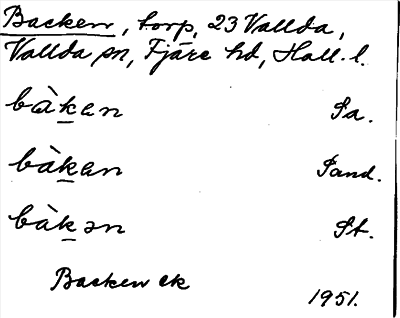 Backen, torp, 23 Vallda,
Vallda sn, Fjäre hd, Hall. l.
bàkan Sa.
bàkan Sand.
bàkən St.
Backen ek
1951.